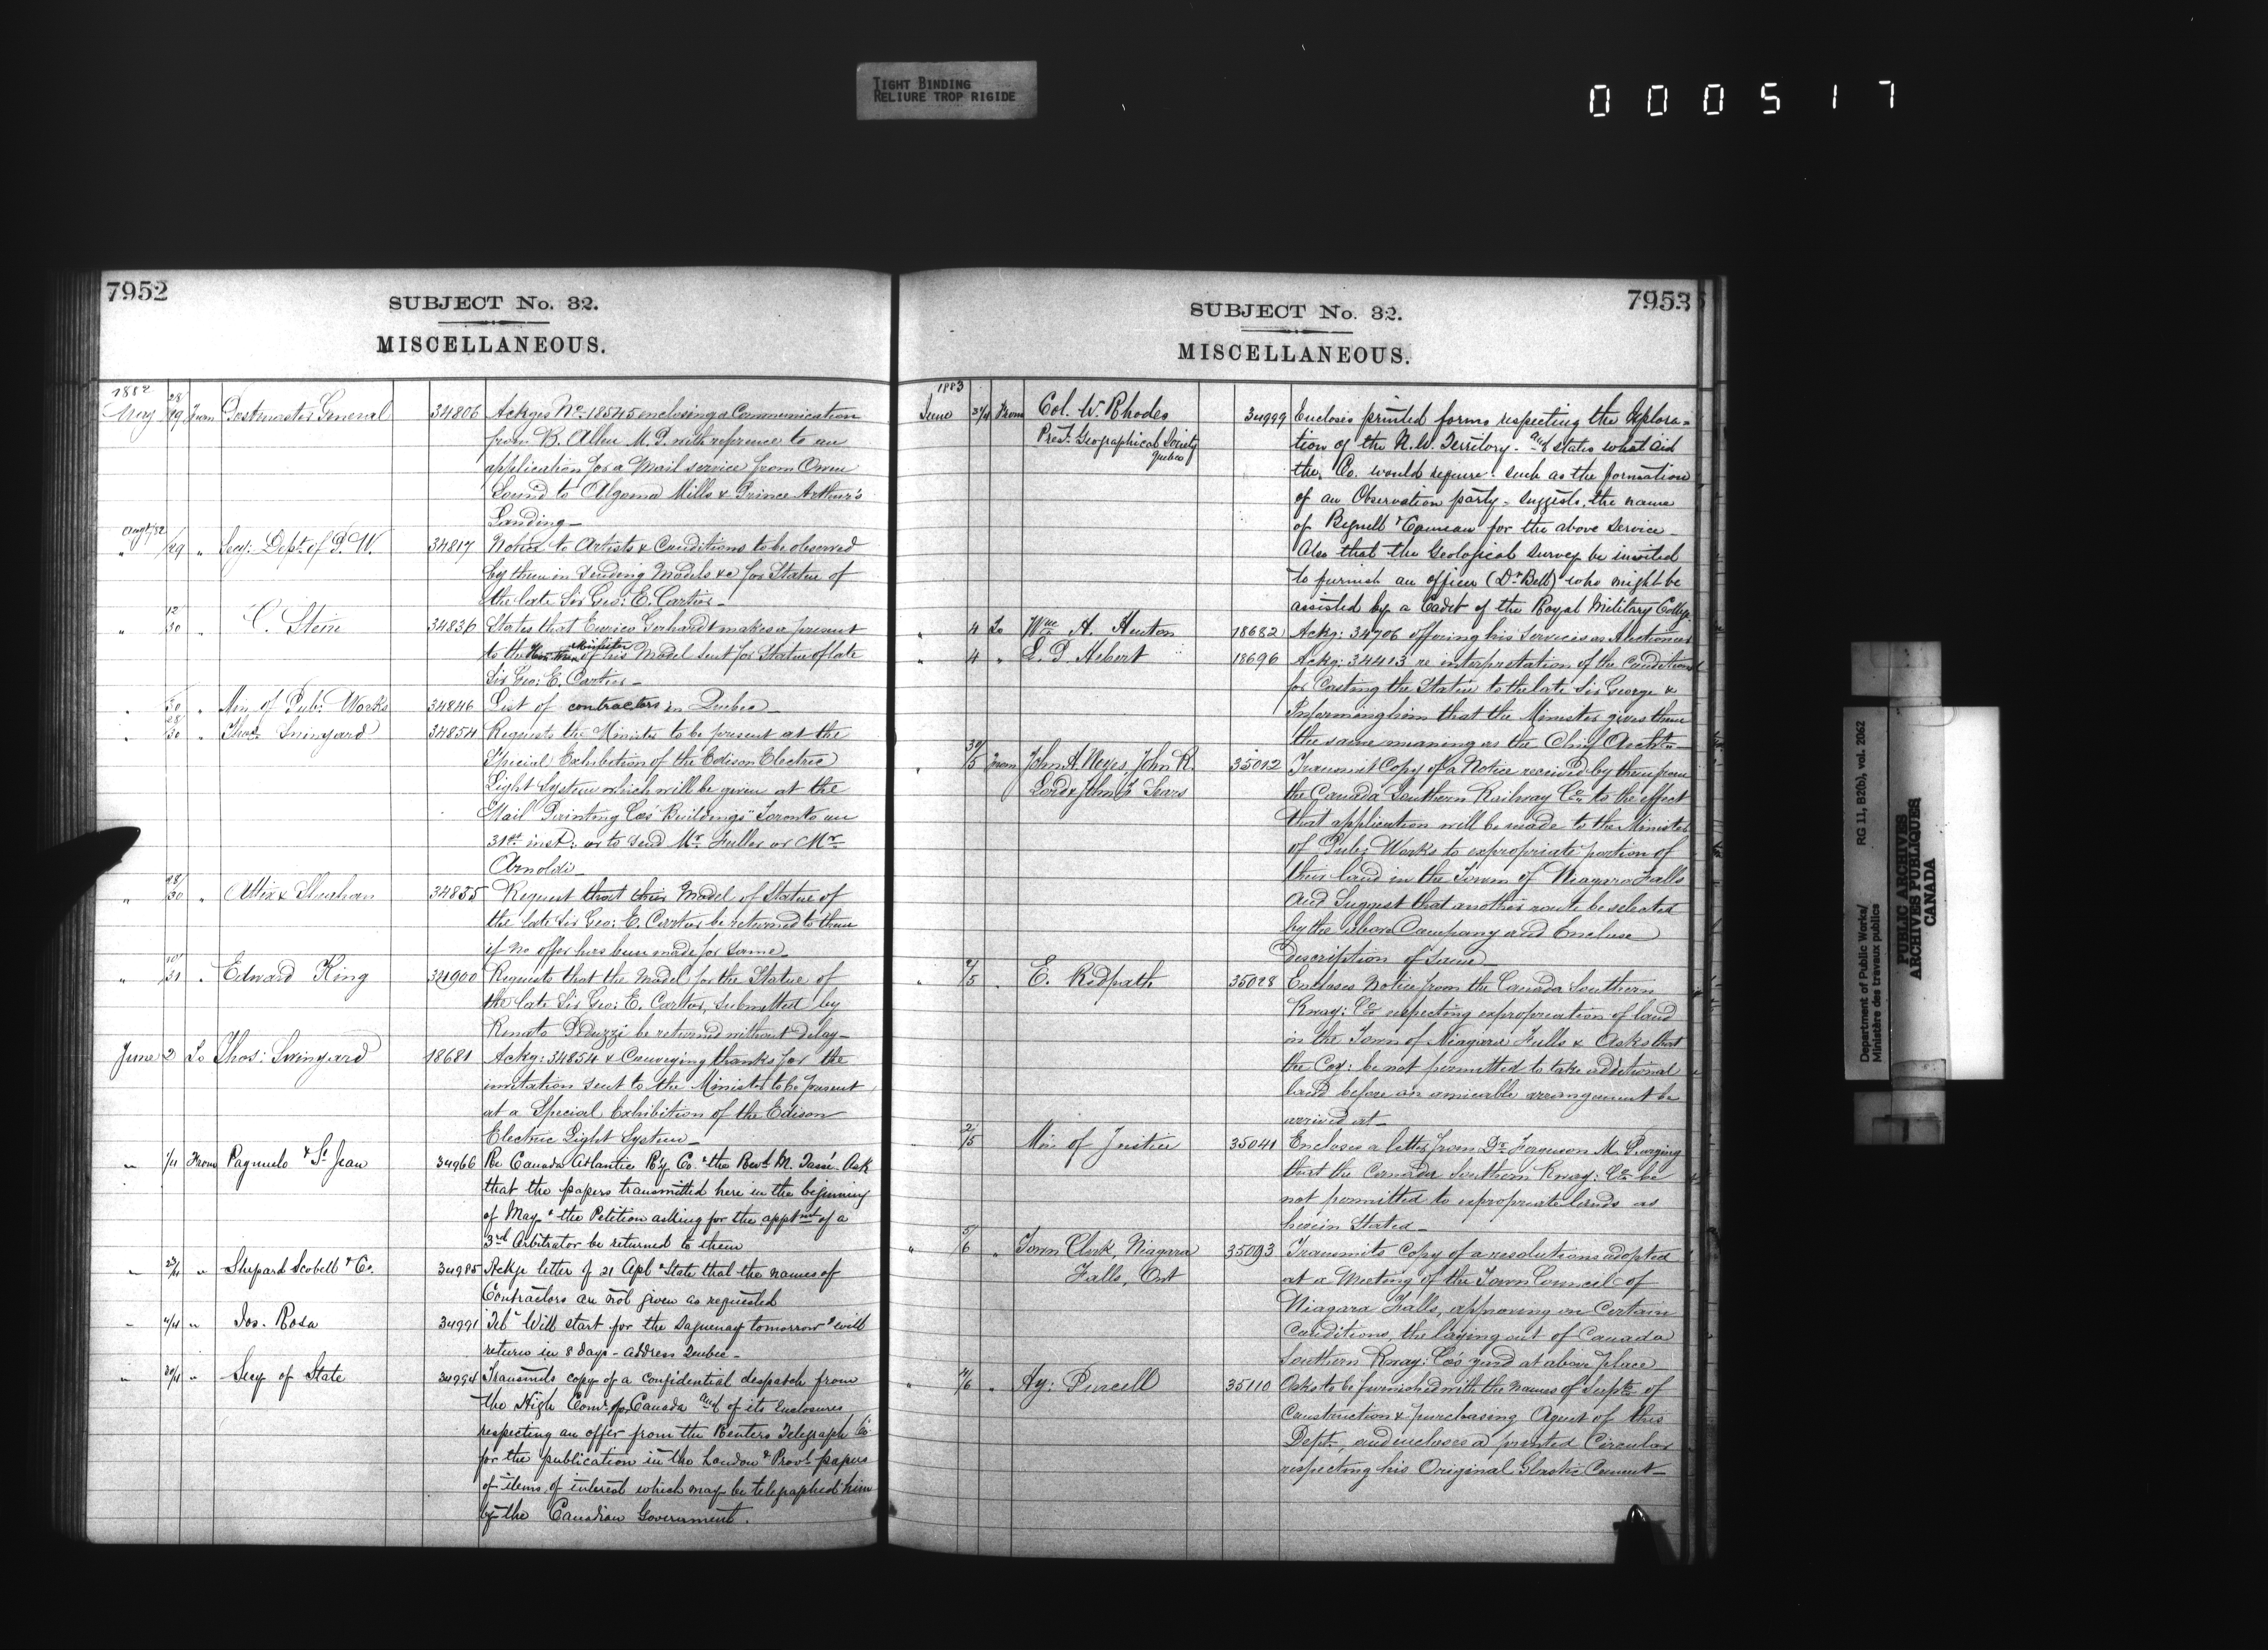 TIGHT BINDING
RELIURE TROP RIGIDE
000517
7952
SUBJECT No. 32.
MISCELLANEOUS.
1882
May 28/29 From Postmaster General 34806 Ackges No. 18545 enclosing a Communication
from B. Allen M.P. with reference to an
application for a Mail service from Owen
Sound to Algoma Mills & Prince Arthur's
Landing—
Augt/82
" /29 " Secy: Dept. of P. W. 34817 Notice to Artists & Conditions to be observed
by them in sending Models &c for Statue of
the late Sir Geo: E. Cartier—
" 12/30 " C. Stein 34836 States that Enrico Gerhardt makes a present
to the Minister of his Model sent for Statue of late
Sir Geo: E. Cartier—
" /30 " Min. of Pub: Works 34846 List of contractors in Quebec—
" 28/30 " Thos: Swinyard 34854 Requests the Minister to be present at the
Special Exhibition of the Edison Electric
Light System which will be given at the
"Mail Printing Co's Buildings" Toronto on
31st inst: or to send Mr. Fuller or Mr.
Arnoldi—
" 28/30 " Attix & Strachan 34855 Request that their Model of Statue of
the late Sir Geo: E. Cartier be returned to them
if no offer has been made for same—
" /31 " Edward King 34900 Requests that the Model for the Statue of
the late Sir Geo: E. Cartier, submitted by
Renato Peduzzi be returned without delay—
June 2 To Thos: Swinyard 18681 Ackg: 34854 & Conveying thanks for the
invitation sent to the Minister to be present
at a Special Exhibition of the Edison
Electric Light System—
" 1/4 From Pagnuelo & St. Jean 34966 Re Canada Atlantic R'y Co. & the Revd. M. Tassé. Ask
that the papers transmitted here in the beginning
of May & the Petition asking for the apptmt of a
3rd Arbitrator be returned to them
" 23/4 " Shepard Scobell & Co. 34985 Ackge letter of 21 Apl & State that the names of
Contractors are not given as requested
" 4/4 " Jos. Rosa 34991 Tel. Will start for the Saguenay tomorrow & will
return in 8 days - address Quebec—
" 30/4 " Secy of State 34994 Transmits copy of a confidential despatch from
the High Comr. for Canada and of its Enclosures
respecting an offer from the Reuters Telegraph Co.
for the publication in the London & Provl. papers
of items of interest which may be telegraphed him
by the Canadian Government.
7953
SUBJECT No. 32.
MISCELLANEOUS.
1883
June 31/4 From Col. W. Rhodes 34999 Encloses printed forms respecting the Explora-
Prest. Geographical Society tion of the N.W. Territory. and states what aid
Quebec
the Co. would require such as the formation
of an Observation party - suggests the name
of Bignell & for the above service—
Also that the Geological Survey be invited
to furnish an officer (Dr. Bell) who might be
assisted by a Cadet of the Royal Military College
" 4 To Wm A. Huton 18682 Ackg: 34706 offering his services as Auctioneer
" 4 " L. P. Hebert 18696 Ackg: 34413 re interpretation of the Conditions
for Casting the Statue to the late Sir George &
Informing him that the Minister gives them
the same meaning as the Chief Archt.—
" 30/5 From John A. Keyes, John R. 35012 Transmit Copy of a Notice received by them from
Lord & John F. Sears the Canada Southern Railway Co. to the effect
that application will be made to the Minister
of Pub: Works to expropriate portion of
their land in the Town of Niagara Falls
and Suggest that another route be selected
by the above Company and Enclose
description of same—
" 2/5 " E. Redpath 35028 Encloses Notice from the Canada Southern
Rway: Co. respecting expropriation of land
in the Town of Niagara Falls & Asks that
the Coy: be not permitted to take additional
land before an amicable arrangement be
arrived at—
2/5 Min. of Justice 35041 Encloses a letter from Dr. Ferguson M.P. urging
that the Canada Southern Rway: Co. be
not permitted to expropriate lands as
herein Stated—
" 5/6 " Town Clerk, Niagara 35093 Transmits Copy of a resolutions adopted
Falls, Ont at a Meeting of the Town Council of
Niagara Falls, approving on Certain
Conditions, the laying out of Canada
Southern Rway: Co's yard at above place
" /6 " Hy: Purcell 35110 Asks to be furnished with the names of Supt. of
Construction & purchasing Agent of this
Dept., and encloses a printed Circular
respecting his Original Elastic Cement—
Department of Public Works/
Ministère des travaux publics
RG 11, B2(b), vol. 2062
PUBLIC ARCHIVES
ARCHIVES PUBLIQUES
CANADA